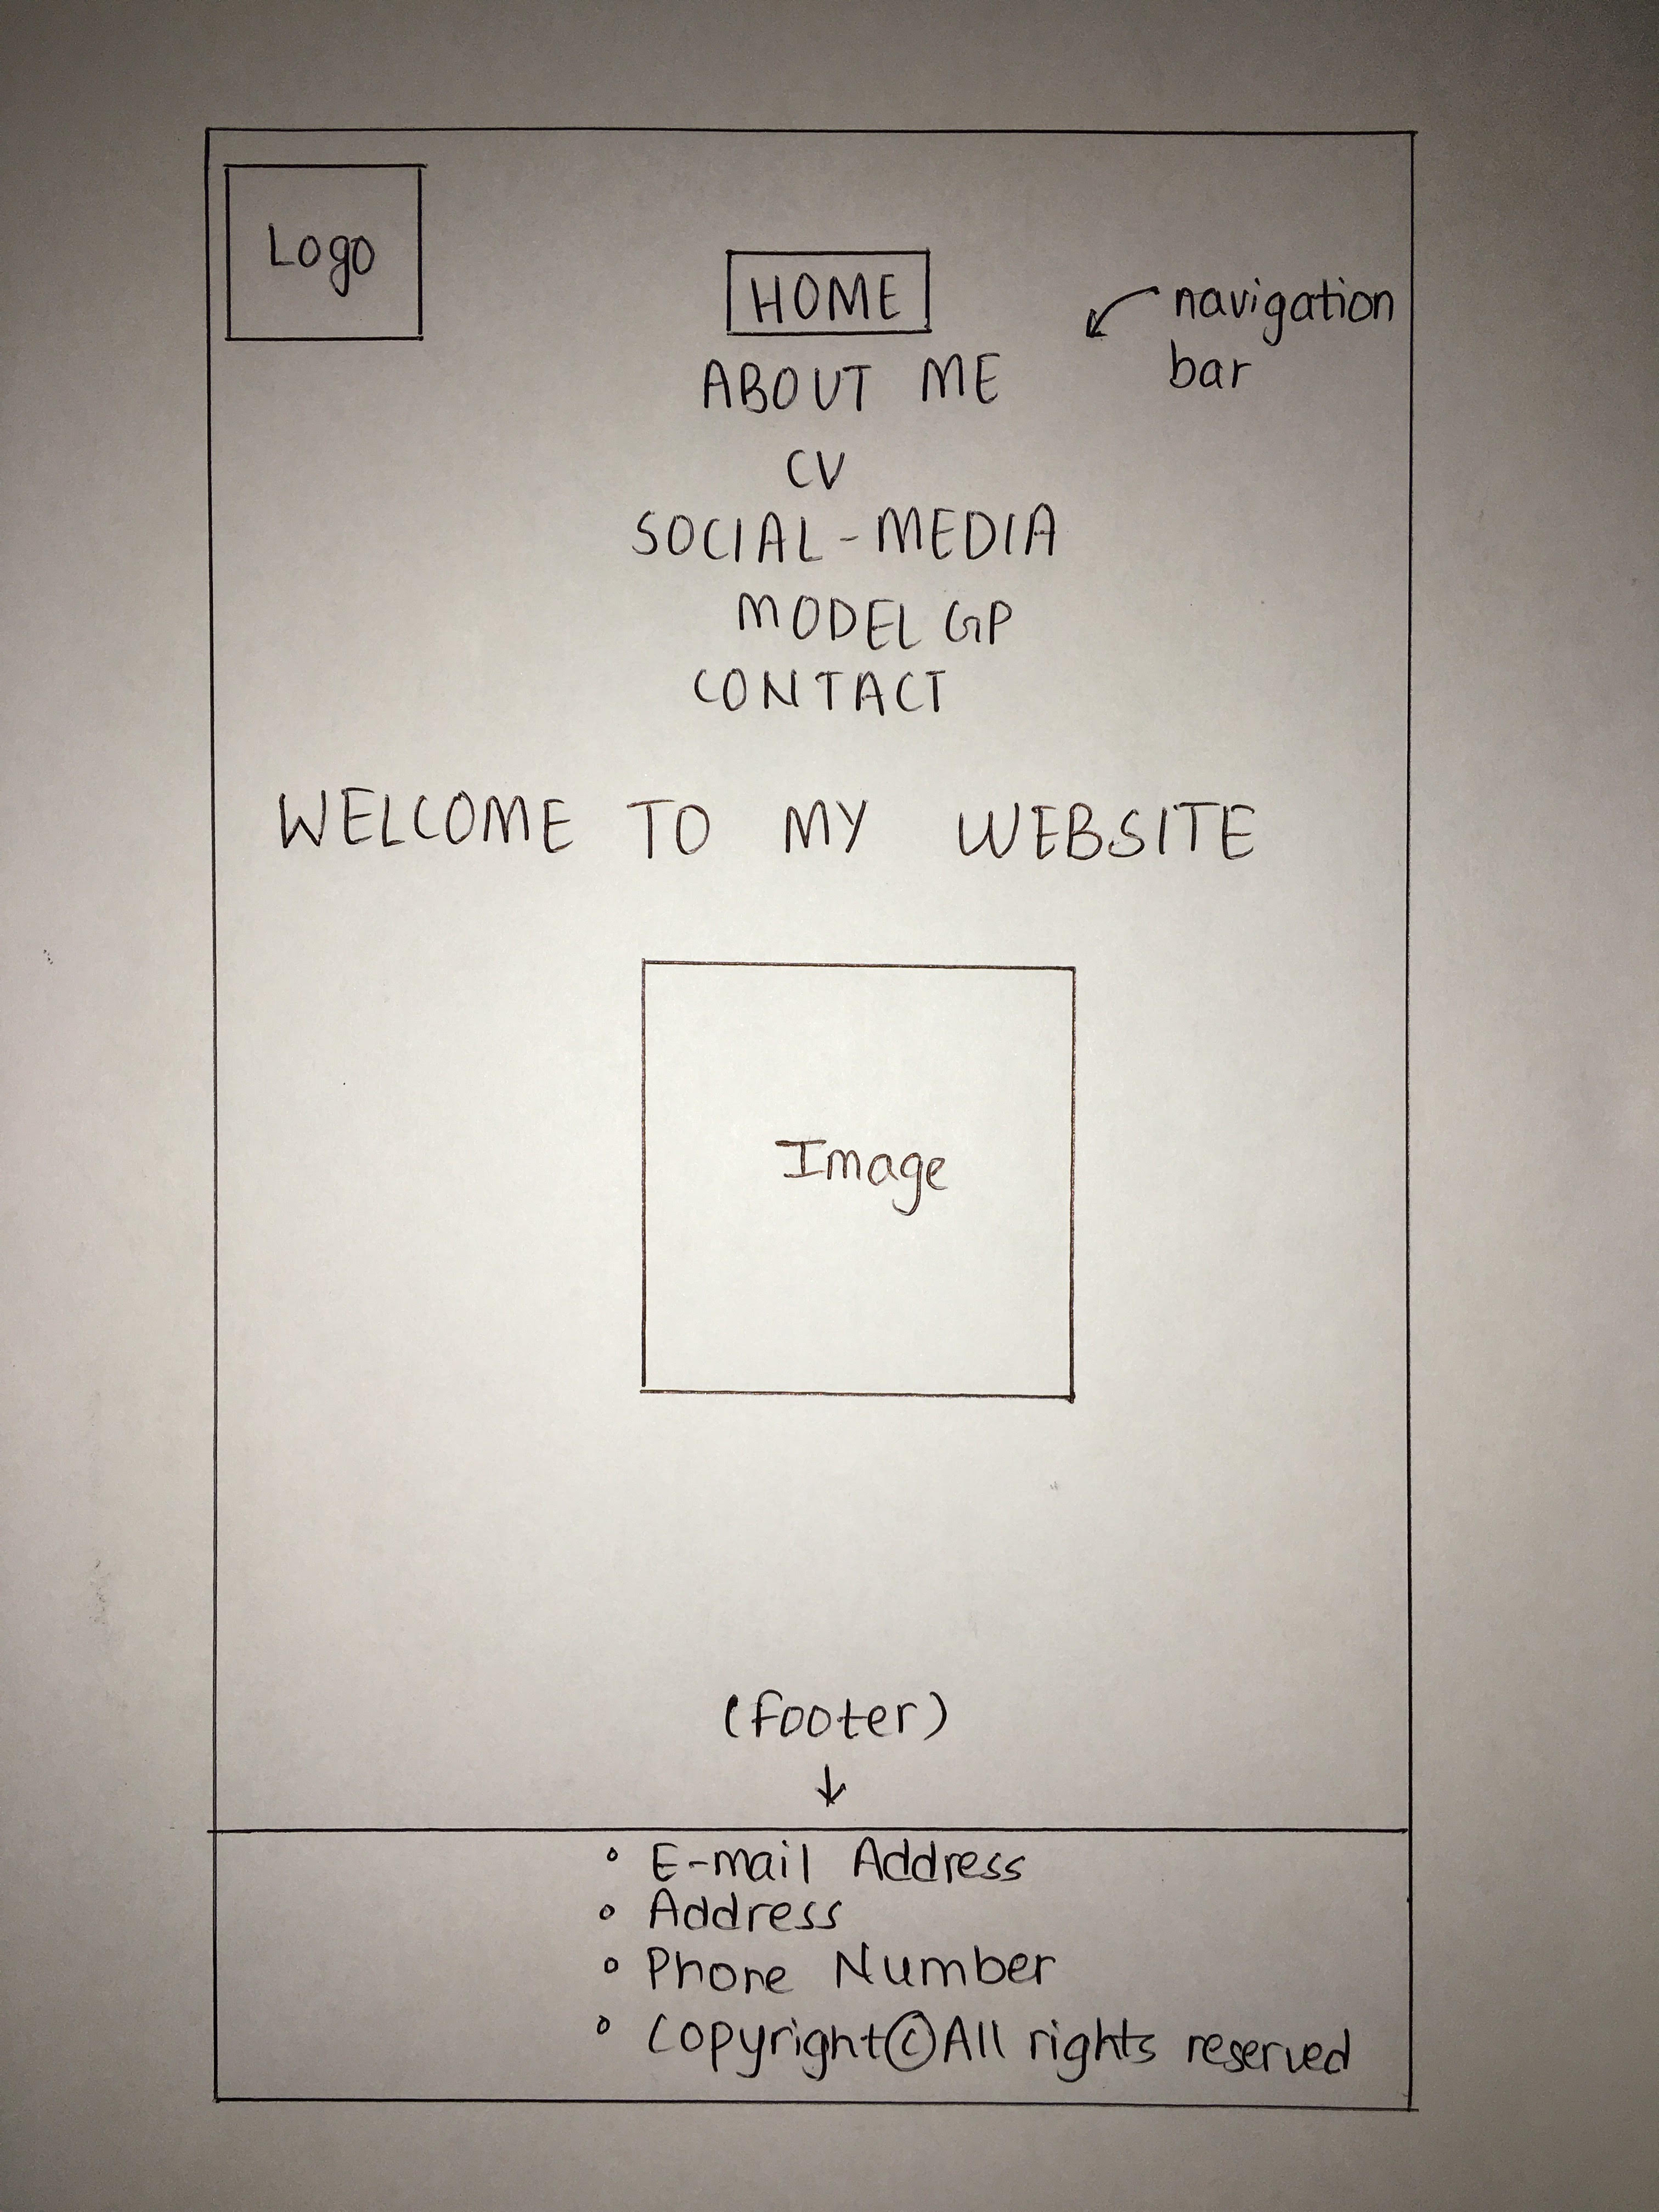 Logo
HOME
navigation
bar
ABOUT ME
CV
SOCIAL-MEDIA
MODEL GP
CONTACT
WELCOME TO MY WEBSITE
Image
(footer)
↓
◦ E-mail Address
◦ Address
◦ Phone Number
◦ Copyright©All rights reserved